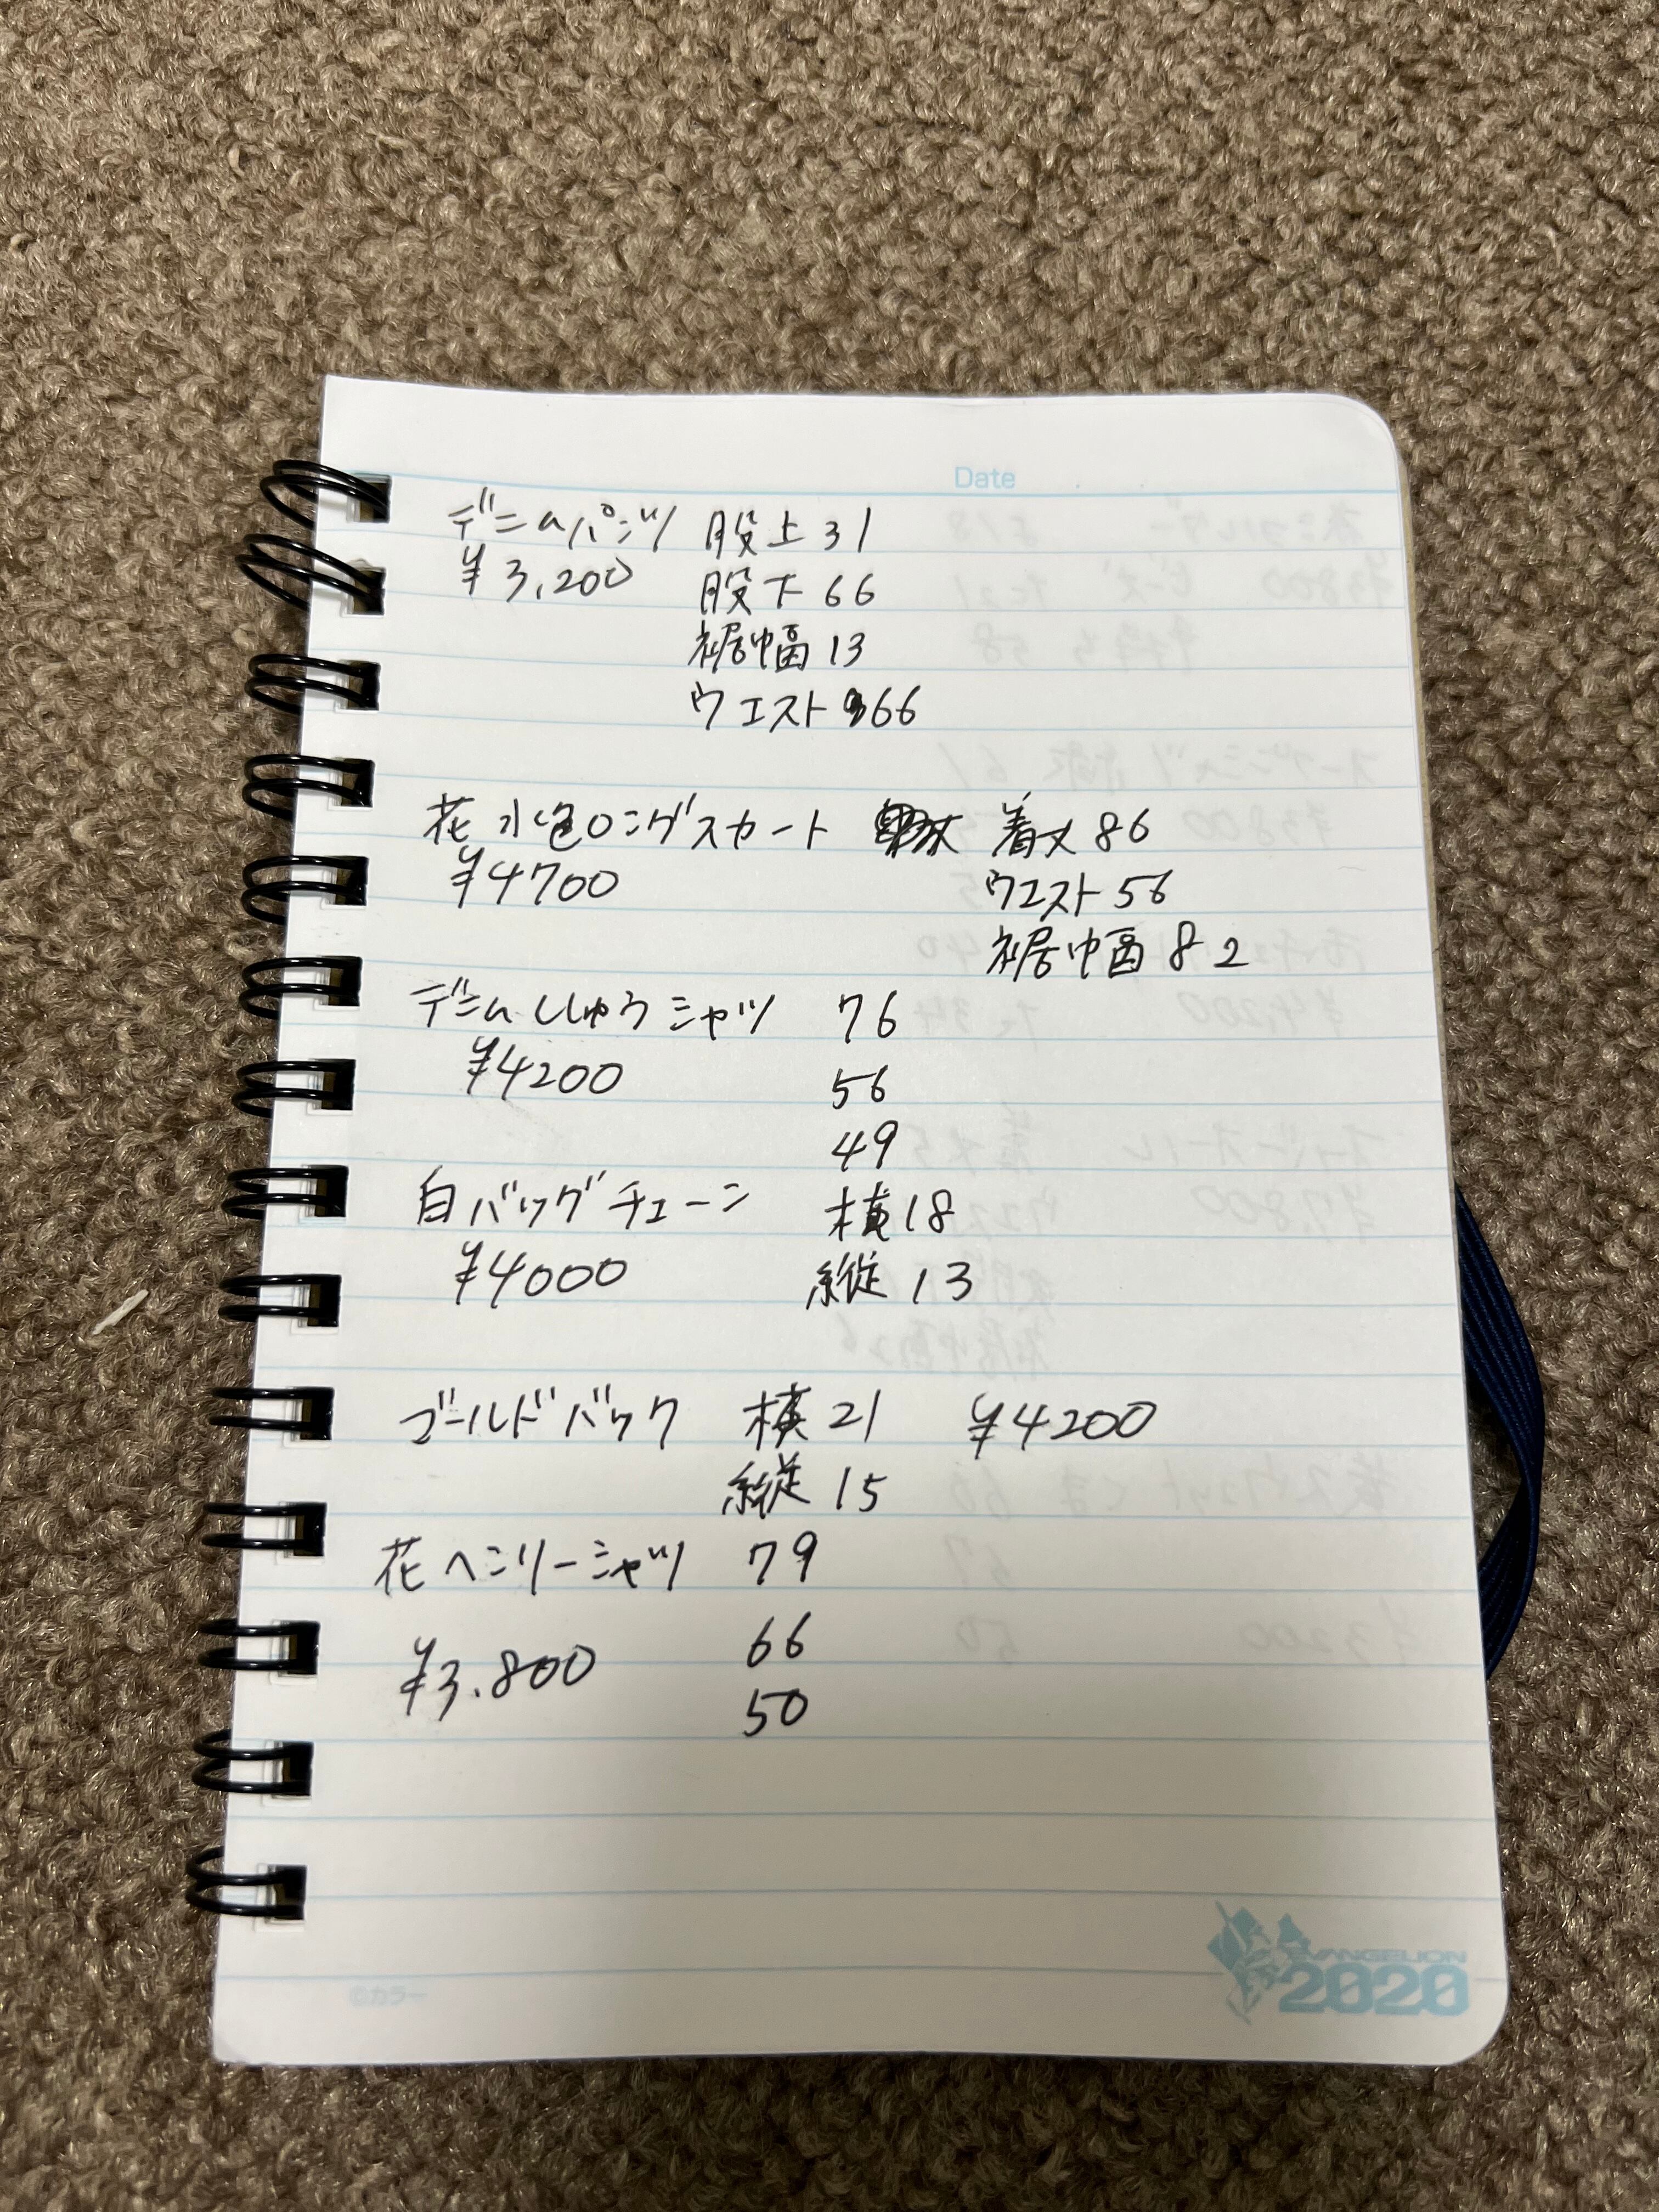 Date
デニムパンツ 股上 31
¥3,200 股下 66
裾幅 13
ウエスト 66
花 水色ロングスカート 着丈 86
¥4700 ウエスト 56
裾幅 82
デニムししゅうシャツ 76
¥4200 56
49
白バッグチェーン 横 18
¥4000 縦 13
ゴールドバック 横 21 ¥4200
縦 15
花ヘンリーシャツ 79
66
¥3.800
50
EVANGELION
2020
©カラー